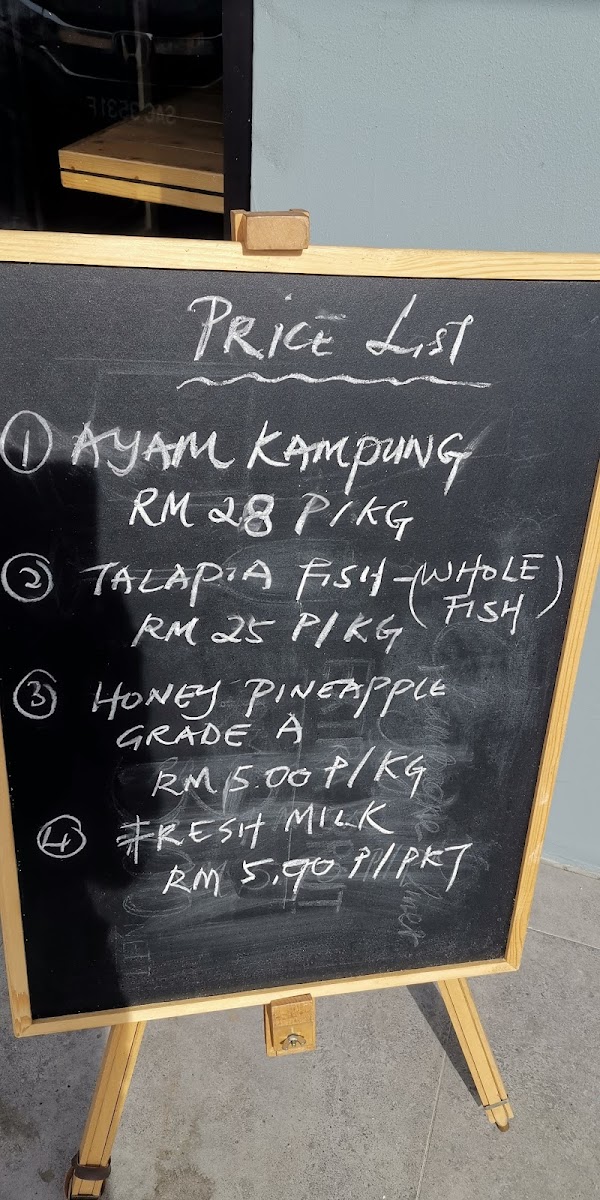 PRICE LIST
① AYAM KAMPUNG
RM 28 P/KG
② TALAPIA FISH - (WHOLE FISH)
RM 25 P/KG
③ HONEY PINEAPPLE
GRADE A
RM 5.00 P/KG
④ FRESH MILK
RM 5.90 P/PKT